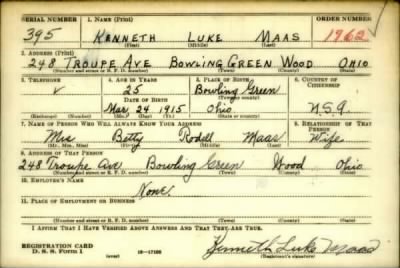 SERIAL NUMBER 1. NAME (Print) ORDER NUMBER
395 KENNETH LUKE MAAS 1962
(First) (Middle) (Last)
2. ADDRESS (Print)
248 TROUPE AVE BOWLING GREEN WOOD OHIO
(Number and street or R. F. D. number) (Town) (County) (State)
3. TELEPHONE 4. AGE IN YEARS 5. PLACE OF BIRTH 6. COUNTRY OF CITIZENSHIP
25 Bowling Green
DATE OF BIRTH (Town or county)
Mar 24 1915 Ohio U.S.A.
(Exchange) (Number) (Mo.) (Day) (Yr.) (State or country)
7. NAME OF PERSON WHO WILL ALWAYS KNOW YOUR ADDRESS 8. RELATIONSHIP OF THAT PERSON
Mrs Betty Rodell Maas Wife
(Mr., Mrs., Miss) (First) (Middle) (Last)
9. ADDRESS OF THAT PERSON
248 Troupe Ave Bowling Green Wood Ohio
(Number and street or R. F. D. number) (Town) (County) (State)
10. EMPLOYER'S NAME
None
11. PLACE OF EMPLOYMENT OR BUSINESS
(Number and street or R. F. D. number) (Town) (County) (State)
I AFFIRM THAT I HAVE VERIFIED ABOVE ANSWERS AND THAT THEY ARE TRUE.
REGISTRATION CARD
D. S. S. Form 1 (over) 16—17105 Kenneth Luke Maas
(Registrant's signature)